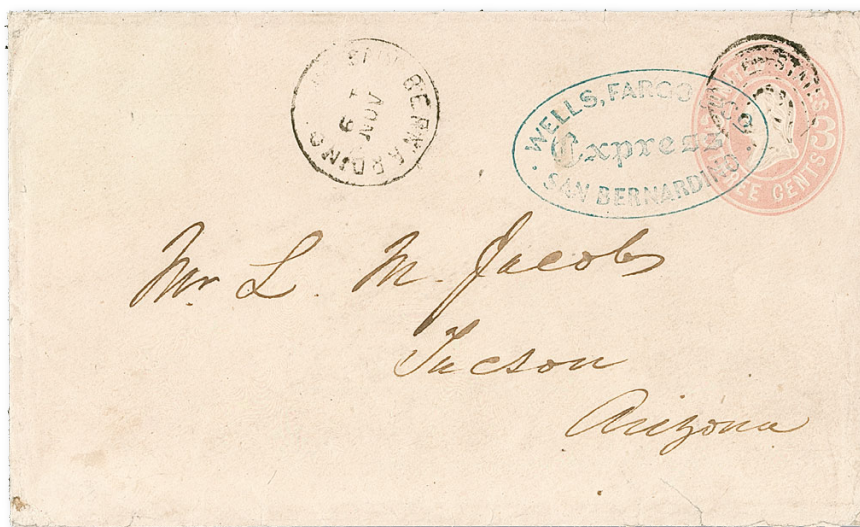 BERNARDINO
9
NOV
WELLS, FARGO & Co.
Express
SAN BERNARDINO
UNITED STATES
3
THREE CENTS
Mr L. M. Jacobs
Tucson
Arizona